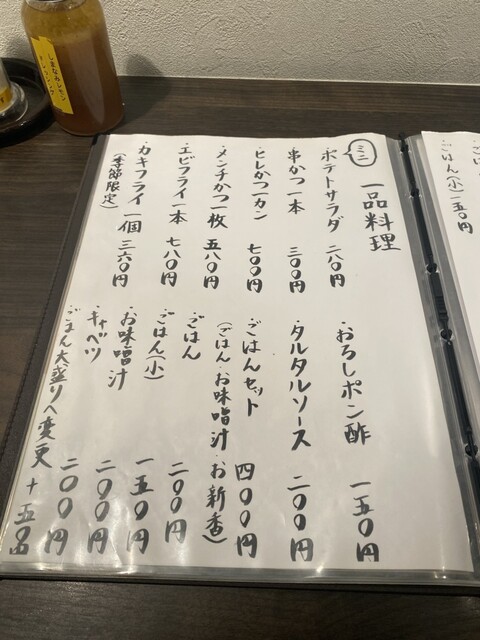 一品料理
ミニ
・ポテトサラダ 二八〇円
・串かつ一本 三〇〇円
・ヒレかつ一カン 七〇〇円
・メンチかつ一枚 五八〇円
・エビフライ一本 七八〇円
・カキフライ一個 三六〇円
(季節限定)
・おろしポン酢 一五〇円
・タルタルソース 二〇〇円
・ごはんセット 四〇〇円
(ごはん・お味噌汁・お新香)
・ごはん 二〇〇円
・ごはん(小) 一五〇円
・お味噌汁 二〇〇円
・キャベツ 二〇〇円
・ごはん大盛りへ変更 +五〇円
ごはん(小)一五〇円